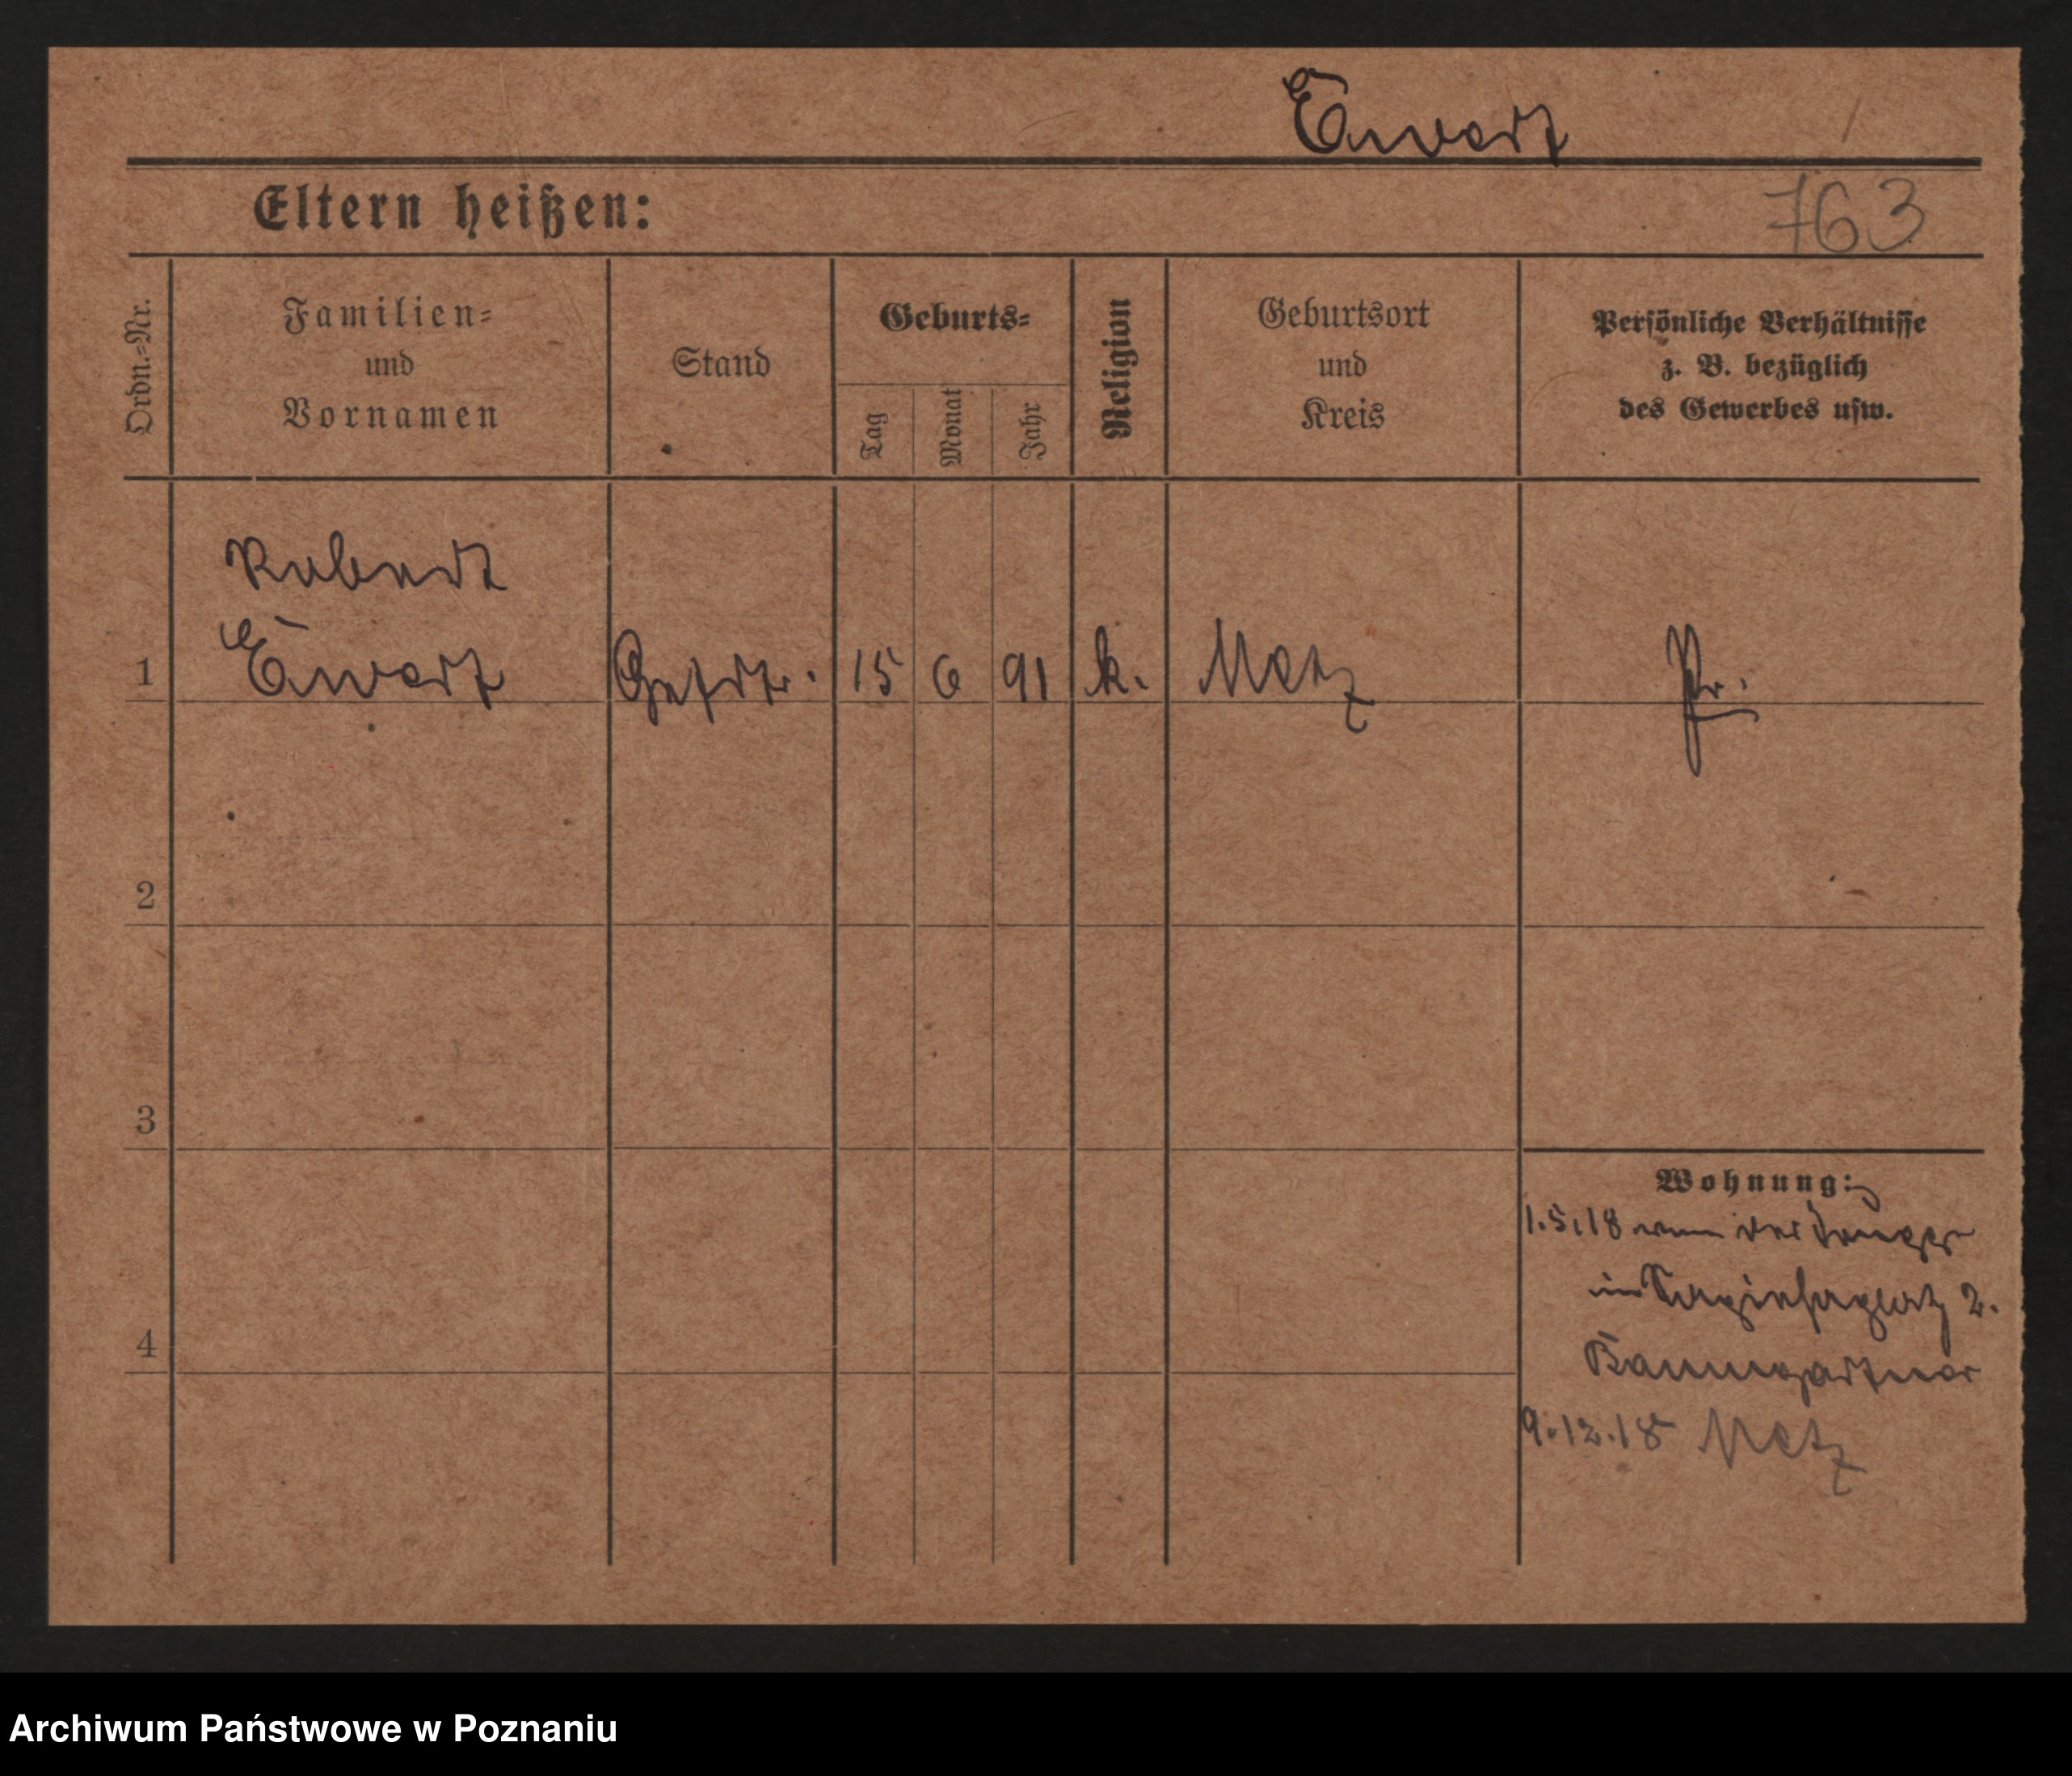 Ewert
Eltern heißen:
763
Ordn.-Nr.
Familien-
und
Vornamen
Stand
Geburts-
Tag
Monat
Jahr
Religion
Geburtsort
und
Kreis
Persönliche Verhältnisse
z. B. bezüglich
des Gewerbes usw.
Robert
1 Ewert 15 6 91 k. Metz Pr.
2
3
Wohnung:
1.5.18 von der
2.
4
Baumgartner
9.12.18 Metz
Archiwum Państwowe w Poznaniu